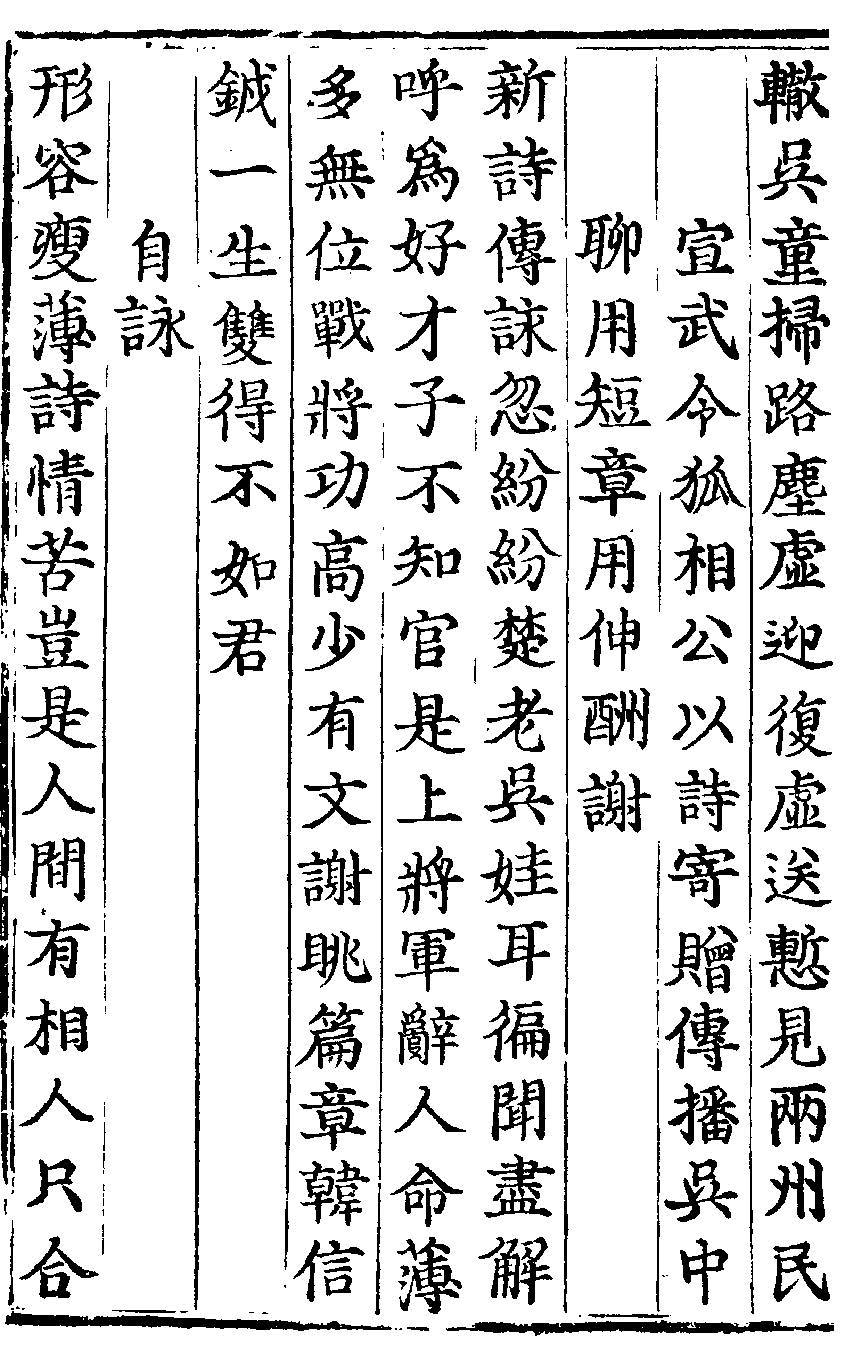 轍吳童掃路塵虛迎復虛送慙見兩州民
宣武令狐相公以詩寄贈傳播吳中
聊用短章用伸酬謝
新詩傳詠忽紛紛楚老吳娃耳徧聞盡解
呼爲好才子不知官是上將軍辭人命薄
多無位戰將功高少有文謝朓篇章韓信
鉞一生雙得不如君
自詠
形容瘦薄詩情苦豈是人間有相人只合